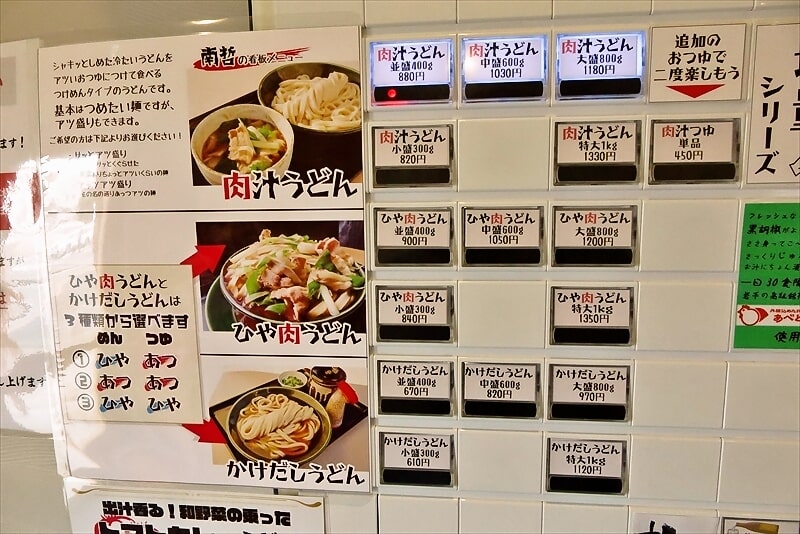 シャキッとしめた冷たいうどんを
アツいおつゆにつけて食べる
つけめんタイプのうどんです。
基本はつめたい麺ですが、
アツ盛りもできます。
ご希望の方は下記よりお選びください！
南哲の看板メニュー
肉汁うどん
ひや肉うどんと
かけだしうどんは
3種類から選べます
めん つゆ
① ひや あつ
② あつ あつ
③ ひや ひや
ひや肉うどん
かけだしうどん
出汁香る！和野菜の乗った
肉汁うどん
並盛400g
880円
肉汁うどん
中盛600g
1030円
肉汁うどん
大盛800g
1180円
追加の
おつゆで
二度楽しもう
肉汁うどん
小盛300g
820円
肉汁うどん
特大1kg
1330円
肉汁つゆ
単品
450円
ひや肉うどん
並盛400g
900円
ひや肉うどん
中盛600g
1050円
ひや肉うどん
大盛800g
1200円
ひや肉うどん
小盛300g
840円
ひや肉うどん
特大1kg
1350円
かけだしうどん
並盛400g
670円
かけだしうどん
中盛600g
820円
かけだしうどん
大盛800g
970円
かけだしうどん
小盛300g
610円
かけだしうどん
特大1kg
1120円
シリーズ
フレッシュな
黒胡椒が
一日30食限
使用